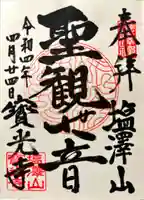 奉拝
塩澤山
聖観世音
令和四年
四月廿四日
寳光寺